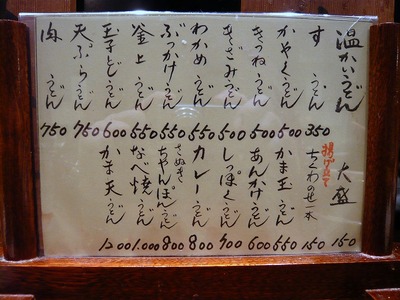 温かいうどん
すうどん 350
かやくうどん 500
きつねうどん 500
きざみうどん 500
わかめうどん 550
ぶっかけうどん 550
釜上うどん 550
玉子とじうどん 600
天ぷらうどん 750
肉うどん 750
大盛 150
揚げ立て
ちくわのせ一本 150
かま玉うどん 550
あんかけうどん 600
しっぽくうどん 700
カレーうどん 800
さぬき
ちゃんぽんうどん 800
なべ焼うどん 1.000
かま天うどん 1200